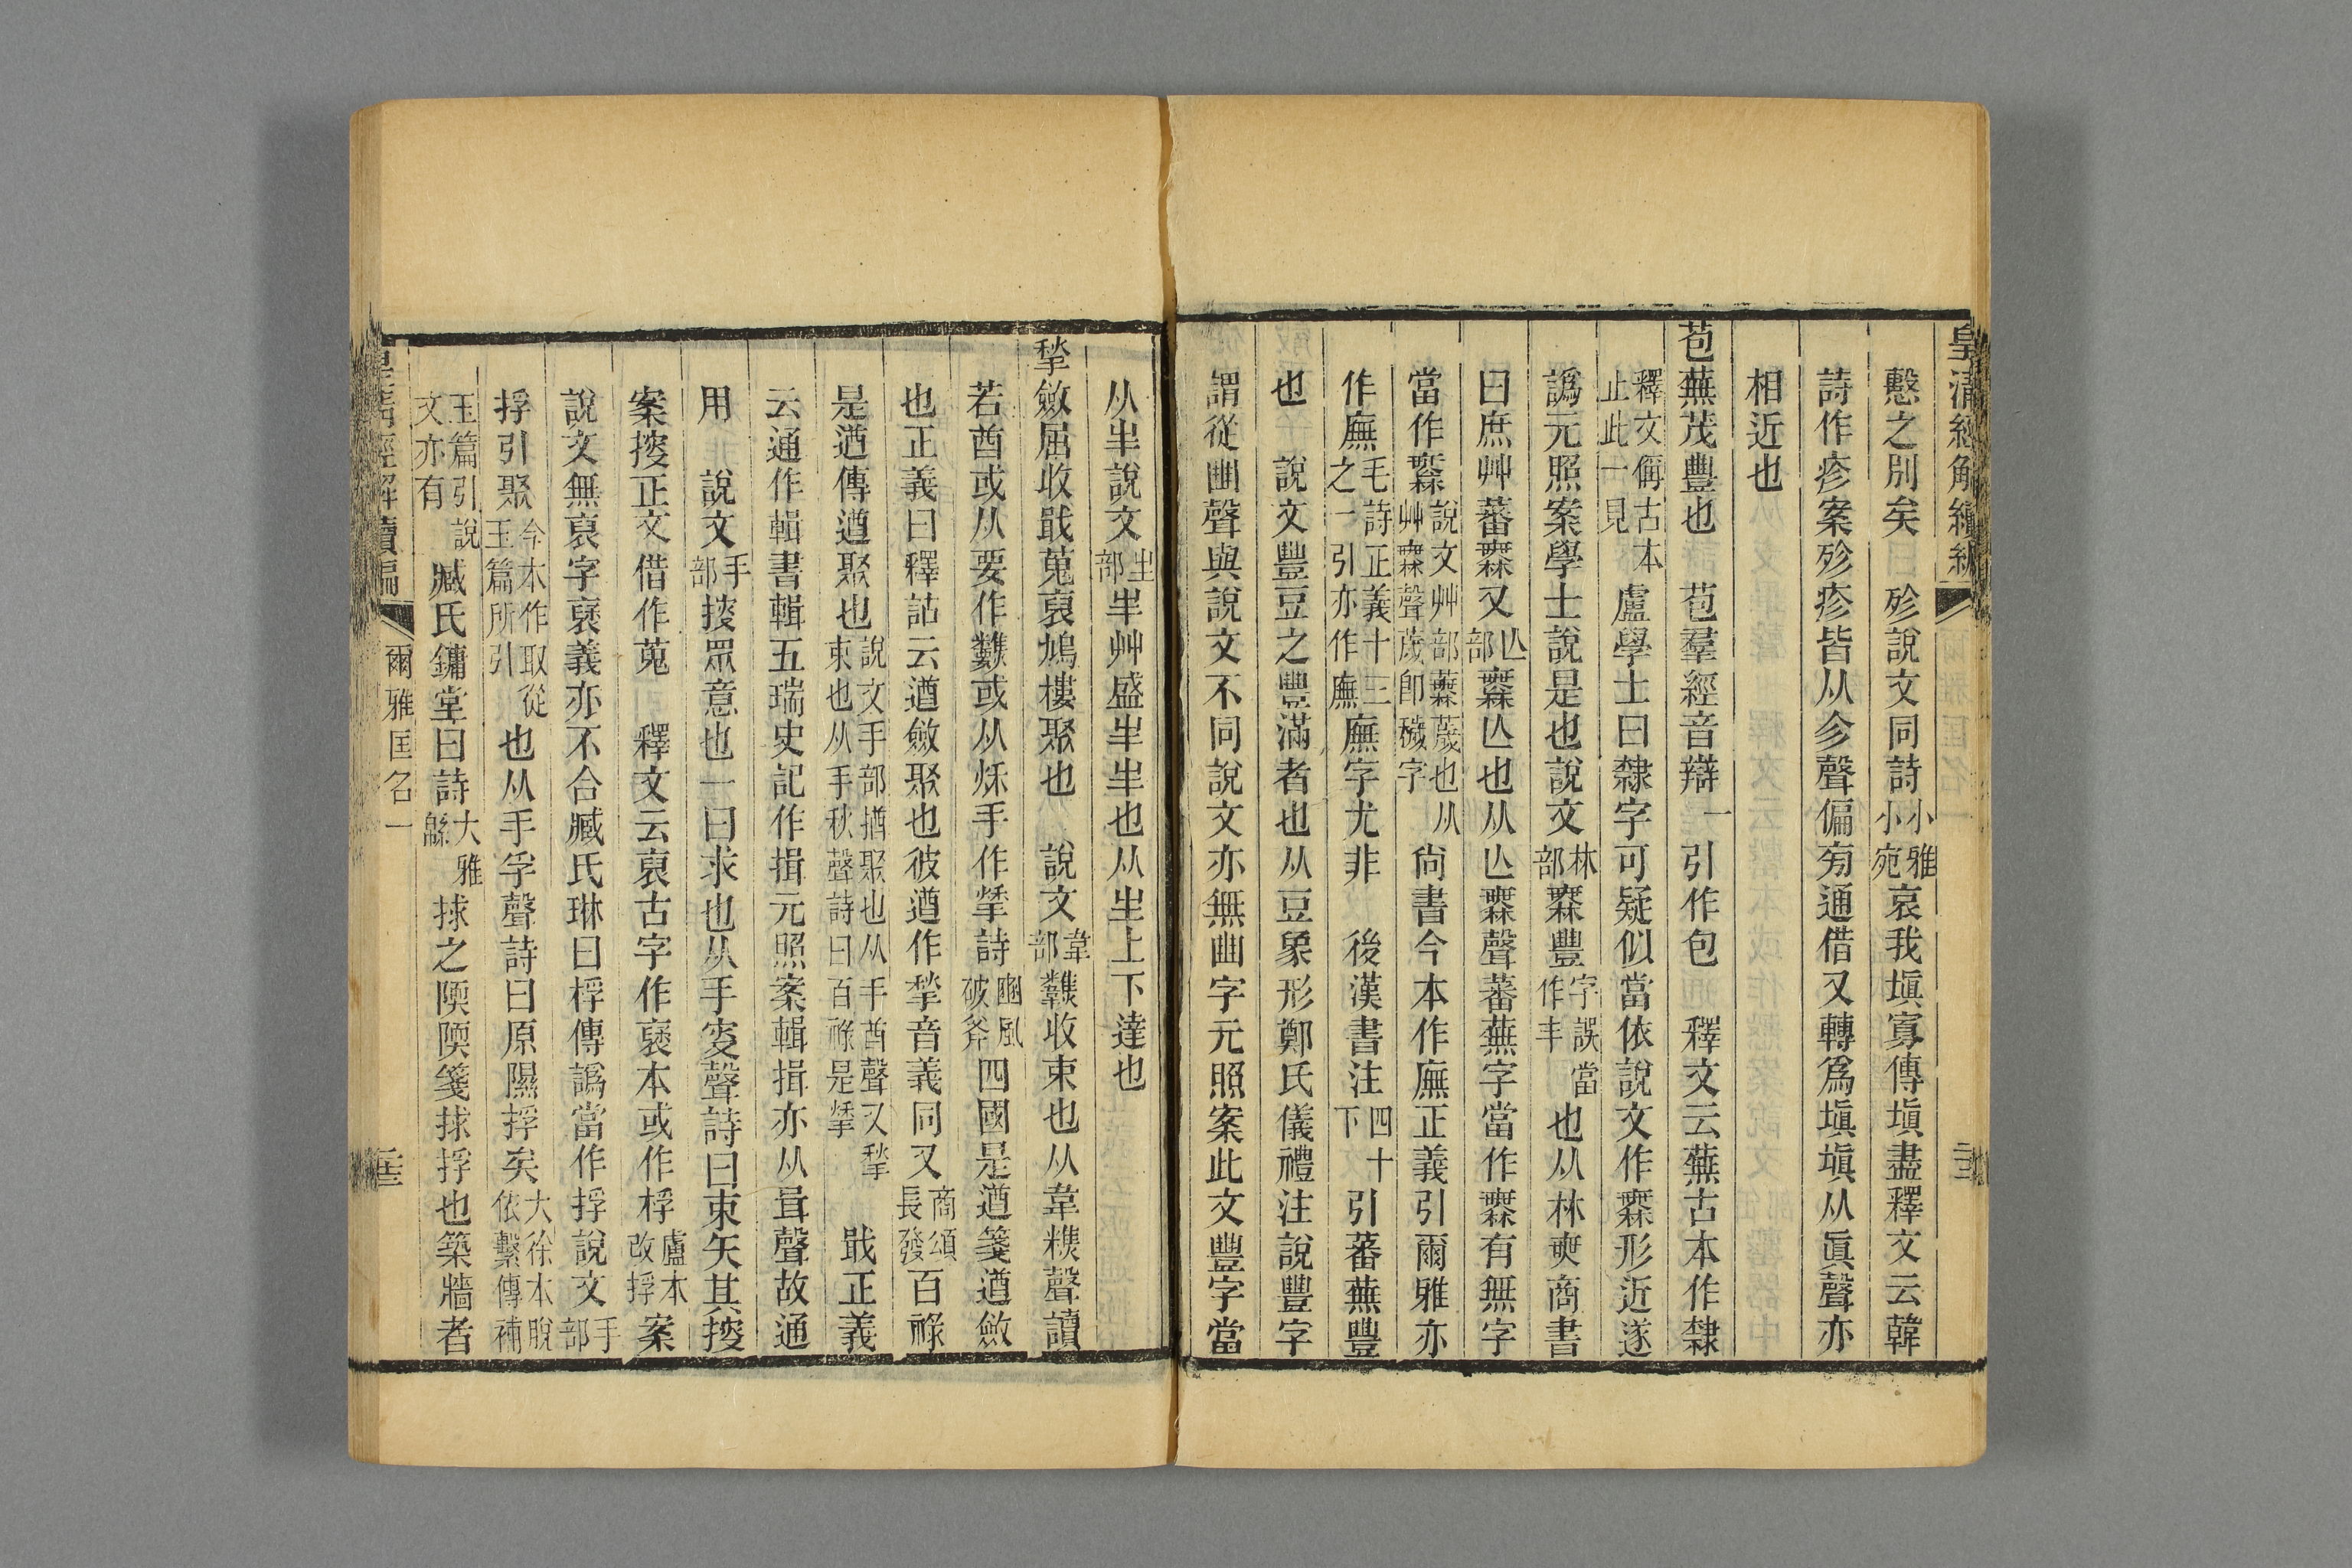 皇清經解續編
慇之別矣　殄說文同詩小雅小宛哀我塡寡傳塡盡釋文云韓
詩作疹案殄疹皆从㐱聲偏旁通借又轉爲塡塡从眞聲亦
相近也
苞蕪茂豐也　苞羣經音辯一引作包　釋文云蕪古本作隸
釋文偁古本止此一見　盧學士曰隸字可疑似當依說文作霖形近遂
譌元照案學士說是也說文林部霖豐字誤當作丰也从林奭商書
曰庶艸蕃霖又亾部霖亾也从亾霖聲蕃蕪字當作霖有無字
當作霖說文艸部蕪薉也从艸霖聲薉卽穢字　尙書今本作廡正義引爾雅亦
作廡毛詩正義十三之一引亦作廡廡字尤非　後漢書注四十下引蕃蕪豐
也　說文豐豆之豐滿者也从豆象形鄭氏儀禮注說豐字
謂從𠁳聲與說文不同說文亦無𠁳字元照案此文豐字當
从半說文生部半艸盛半半也从生上下達也
揫斂屈收戢蒐裒鳩樓聚也　說文韋部䪞收束也从韋糕聲讀
若酋或从要作䪞或从秌手作揫詩豳風破斧四國是遒箋遒斂
也正義曰釋詁云遒斂聚也彼遒作揫音義同又商頌長發百祿
是遒傳遒聚也說文手部揂聚也从手酋聲又揫束也从手秋聲詩曰百祿是揫　戢正義
云通作輯書輯五瑞史記作揖元照案輯揖亦从咠聲故通
用　說文手部搜眾意也一曰求也从手叜聲詩曰束矢其搜
案搜正文借作蒐　釋文云裒古字作褎本或作桴盧本改捊案
說文無裒字褎義亦不合臧氏琳曰桴傳譌當作捊說文手部
捊引聚今本作取從玉篇所引也从手孚聲詩曰原隰捊矣大徐本脫依繫傳補
玉篇引說文亦有　臧氏鏞堂曰詩大雅緜捄之陾陾箋捄捊也築牆者
皇清經解續編　爾雅匡名一